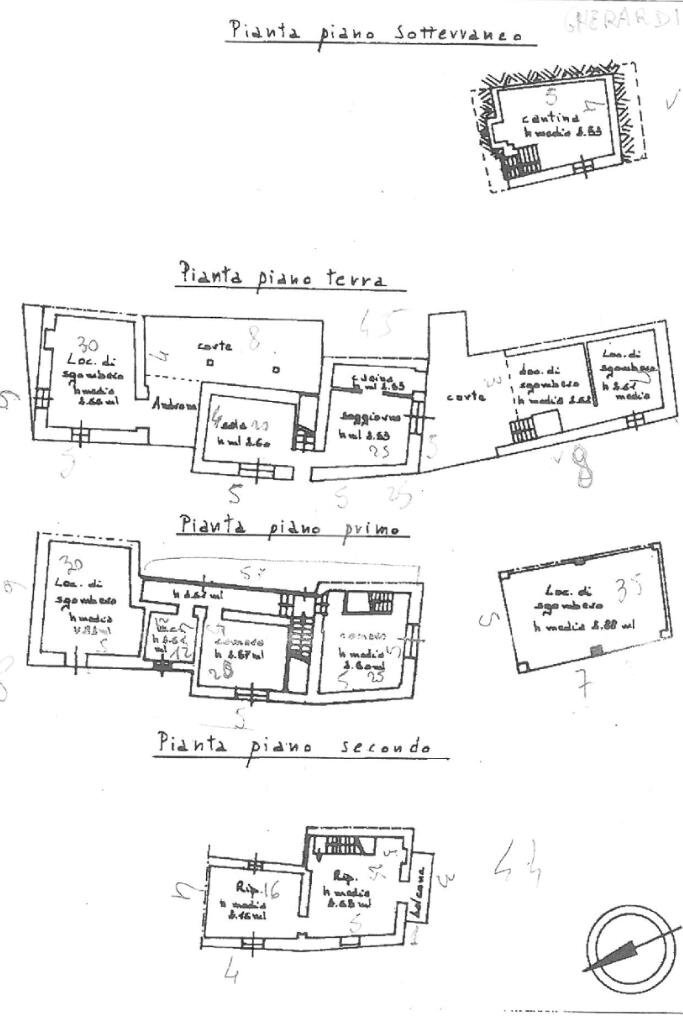 Pianta piano sotterraneo
GHERARDI
5
4
cantina
h media 2.53
Pianta piano terra
45
30
Loc. di
sgombero
h media
2.60 ml
9
5
corte
8
4
Androna
h ml 2.60
5
cucina
ml 2.53
soggiorno
h ml 2.53
25
5
25
5
corte
Loc. di
sgombero
h media 2.62
Loc. di
sgombero
media
8
Pianta piano primo
30
Loc. di
sgombero
h media
9
5
12
camera
h 2.57 ml
5
camera
h media
2.60 ml
5
25
Loc. di
sgombero
h media 2.88 ml
35
5
7
Pianta piano secondo
Rip. 16
h media
2.15 ml
4
4
Rip.
h media
2.68 ml
5
balcone
3
44